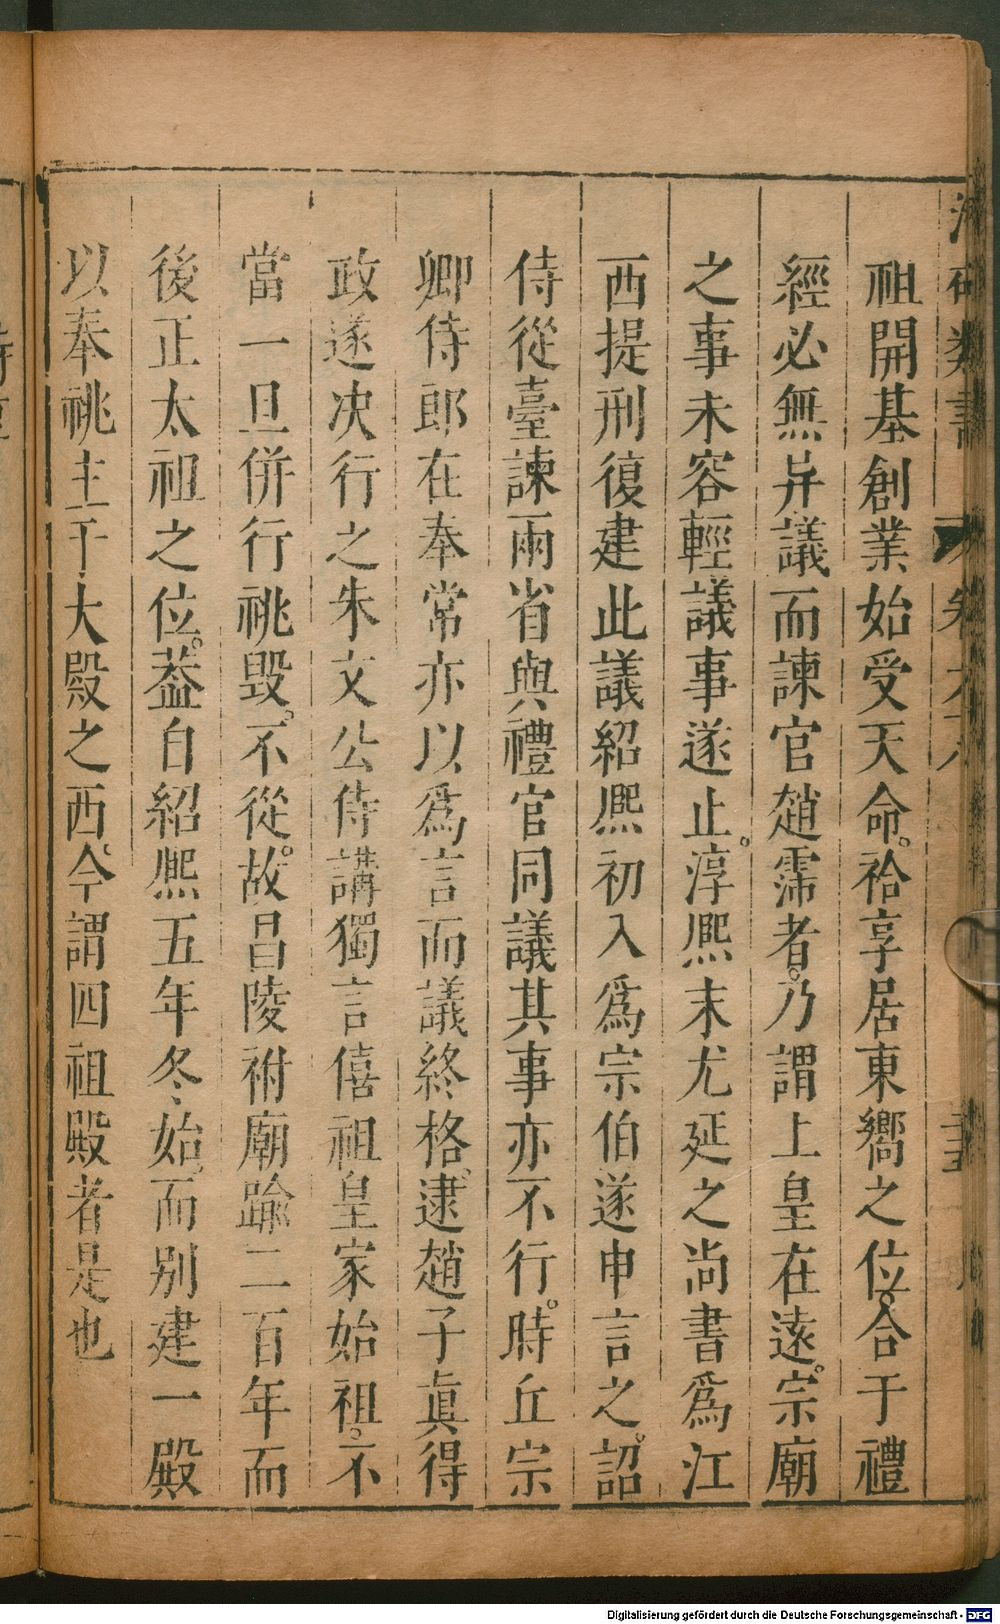 祖開基創業始受天命。祫享居東嚮之位。合于禮
經必無异議而諫官趙霈者。乃謂上皇在遠。宗廟
之事未容輕議事遂止。淳熈末尤延之尚書爲江
西提刑復建此議紹熈初入爲宗伯遂申言之。詔
侍從臺諫兩省與禮官同議其事亦不行。時丘宗
卿侍郎在奉常亦以爲言而議終格。逮趙子眞得
政遂决行之朱文公侍講獨言僖祖皇家始祖。不
當一旦併行祧毁。不從。故昌陵祔廟踰二百年而
後正太祖之位。葢自紹熈五年冬始。而别建一殿
以奉祧主于大殿之西。今謂四祖殿者是也
Digitalisierung gefördert durch die Deutsche Forschungsgemeinschaft - DFG